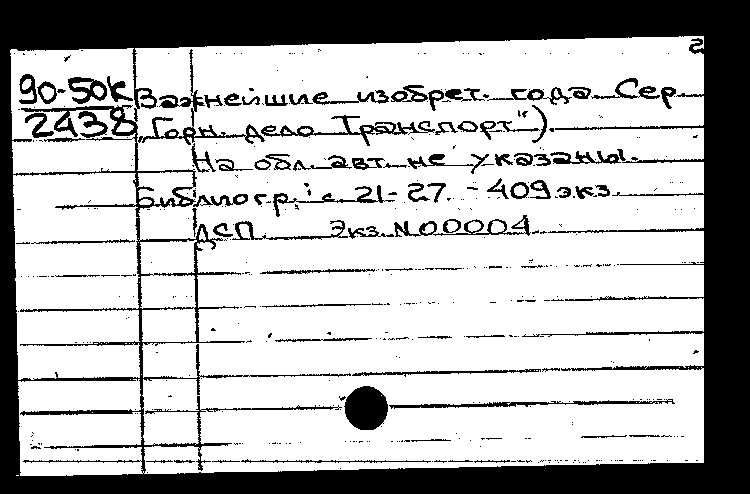 2
90-50к Важнейшие изобрет. года. Сер.
2438 „Горн. дело Транспорт").
На обл. авт. не указаны.
Библиогр.: с. 21-27. - 409 экз.
ДСП. Экз. N 00004